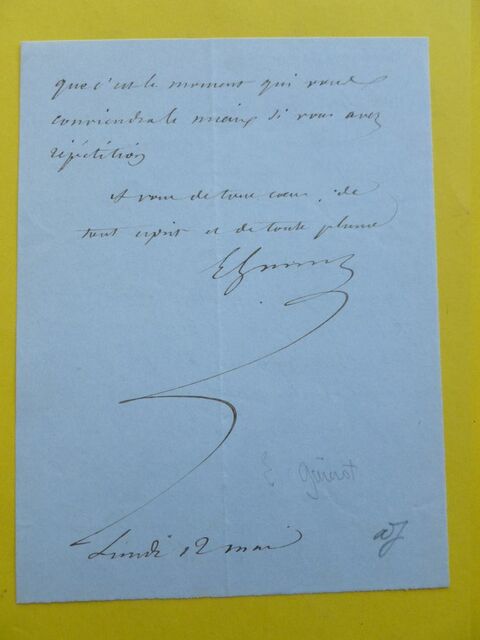 que c'est le moment qui vous
conviendra le mieux si vous avez
répétition
A vous de tout coeur, de
tout esprit et de toute plume
E Guinot
E Guinot
Lundi 12 mai